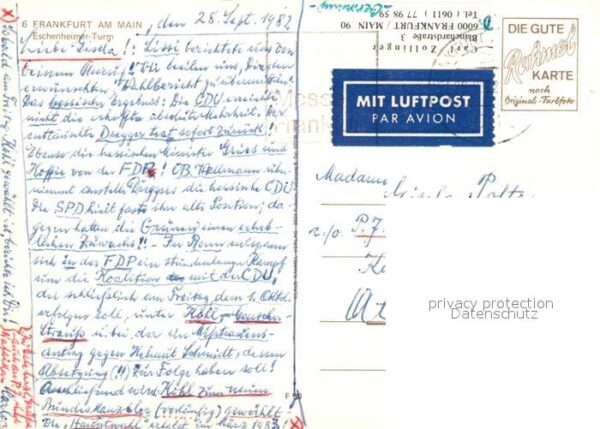 6 FRANKFURT AM MAIN
Eschenheimer Turm
, den 28. Sept. 1982
Liebe Gisela! : Lissi berichtete uns von
Deinem Anruf! Wir beeilen uns, Dir den
erwünschten Wahlbericht zu übermitteln!
Das hessische Ergebnis: Die CDU erreichte
nicht die erhoffte absolute Mehrheit. Der
enttäuschte Dregger trat sofort zurück!
Ebenso die hessischen Minister Gries und
Hoffie von der FDP! OB. Wallmann über-
nimmt anstelle Dreggers die hessische CDU
Die SPD hielt fast ihre alte Position; da-
gegen hatten die Grünen einen erheb-
lichen Zuwachs!! - In Bonn entspann
sich in der FDP ein stundenlanger Kampf
um die Koalition mit der CDU,
die schließlich am Freitag dem 1. Oktbr.
erfolgen soll, unter Kohl - Genscher -
Strauß u. bei der ein Mißtrauens-
antrag gegen Helmut Schmidt, dessen
Absetzung (!!) zur Folge haben soll!
Anschließend wird Kohl zum neuen
Bundeskanzler (vorläufig) gewählt!
Die "Hauptwahl" erfolgt im März 1983!
Sobald am Freitag Kohl gewählt ist, berichte ich Dir!
Carl Zollinger
3
6000 FRANKFURT / MAIN 90
Tel. (0611) 77 98 59
Messe
MIT LUFTPOST
PAR AVION
DIE GUTE
Rahmel
KARTE
noch
Original-Farbfoto
Madame
Gisela
c/o P.J.
privacy protection
Datenschutz